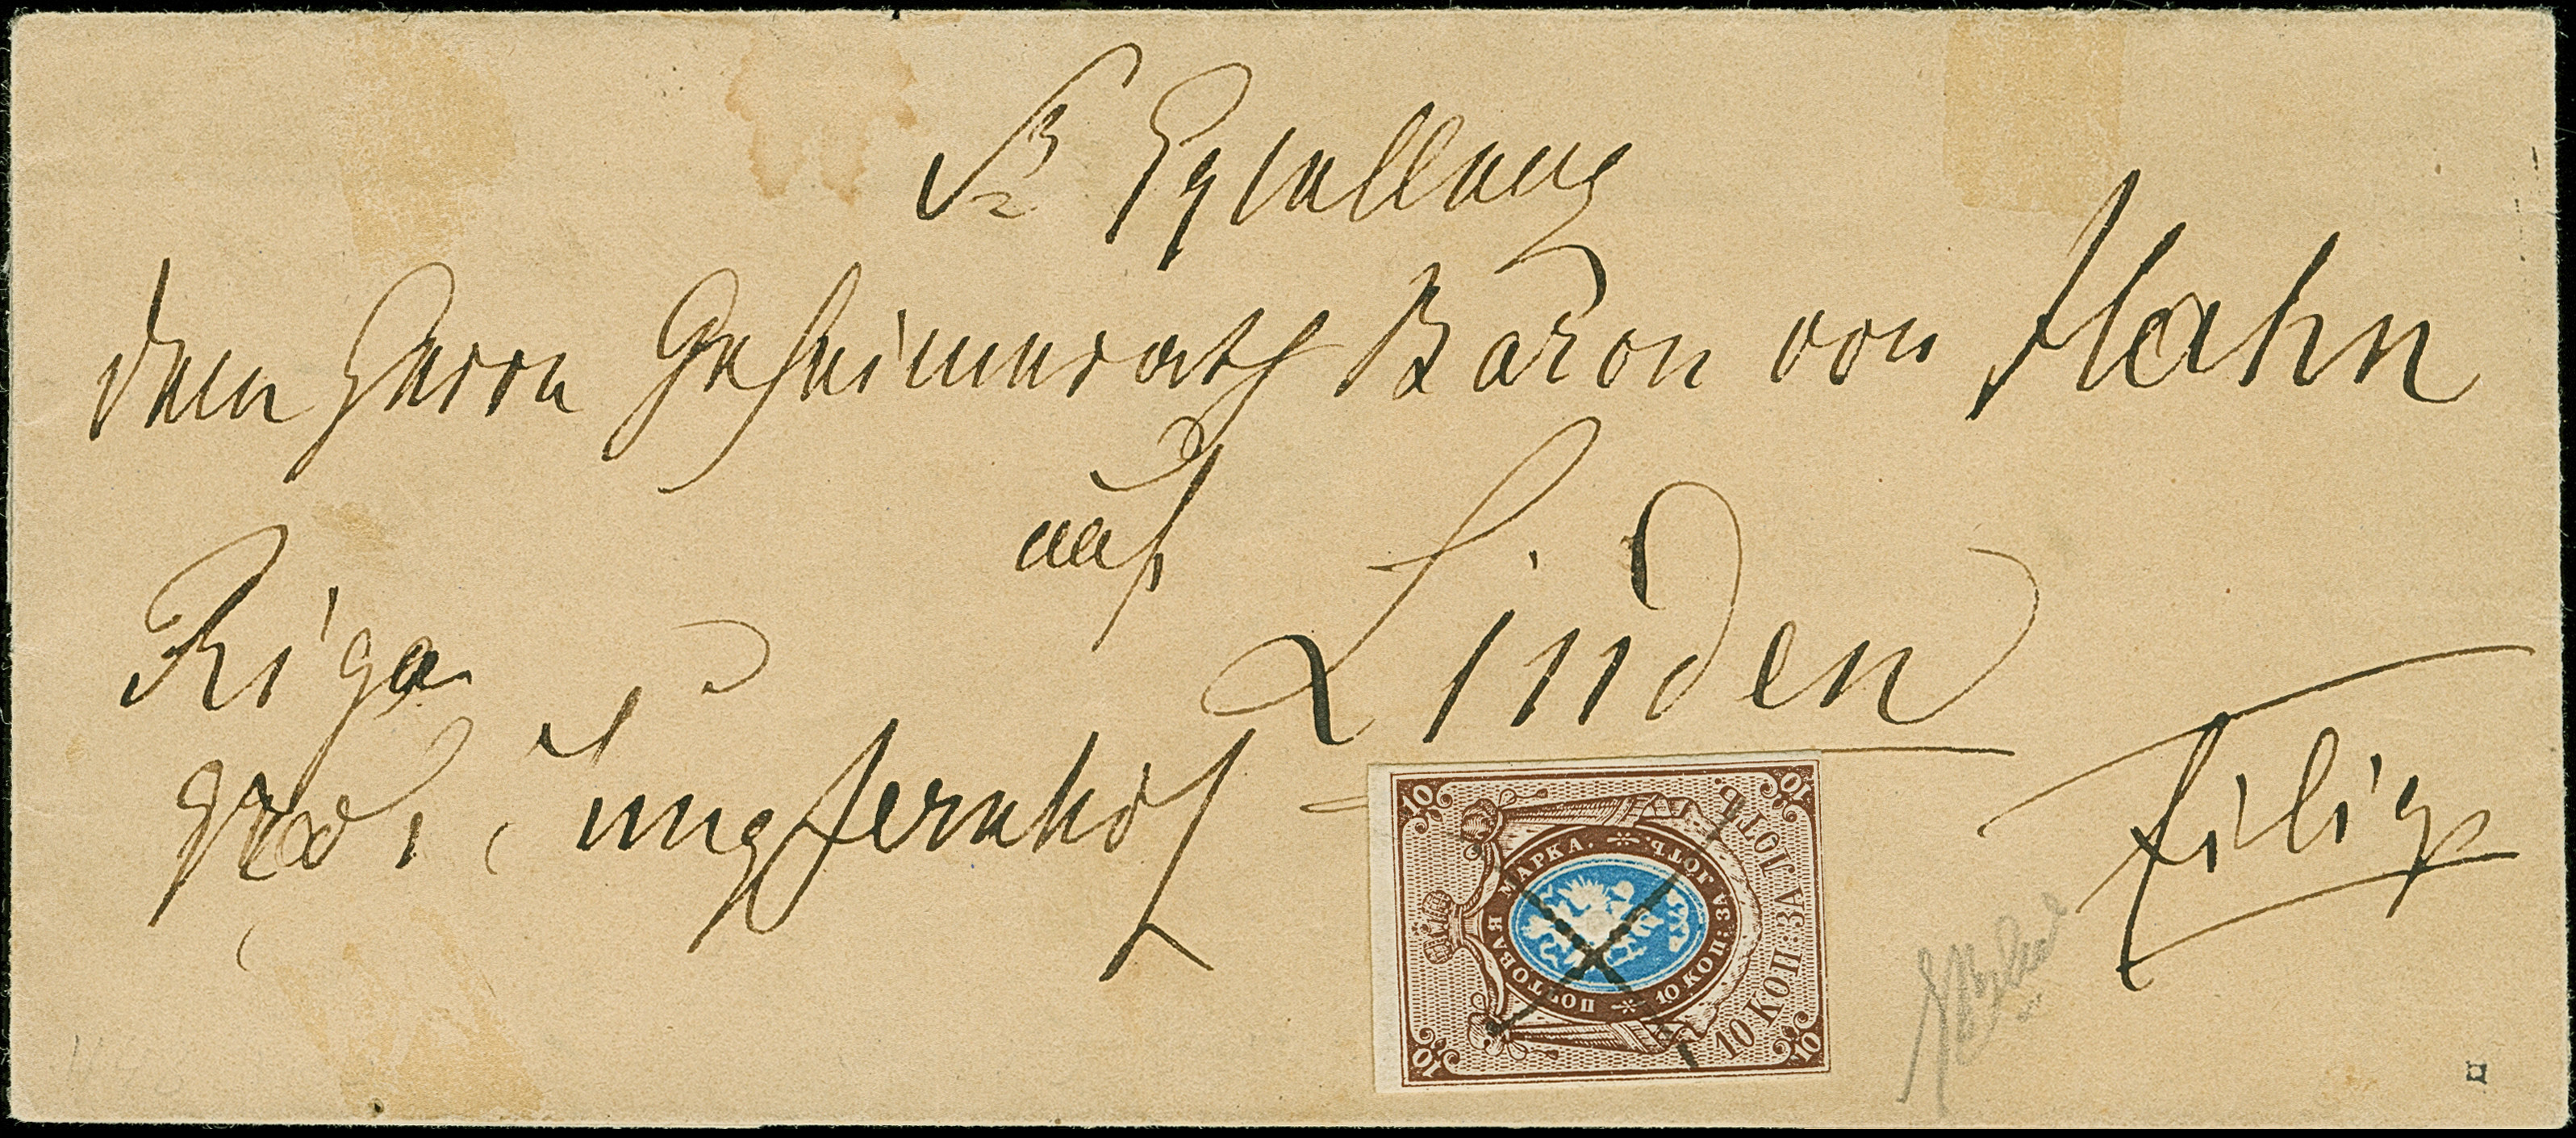 Sr Excellenz
dem Herrn Geheimerath Baron von Hahn
auf
Linden
Riga
gross Jungfernhof
Eilig
10
10
10
10
ПОЧТОВАЯ МАРКА.
10 КОП: ЗА ЛОТЪ
10 КОП: ЗА ЛОТЪ